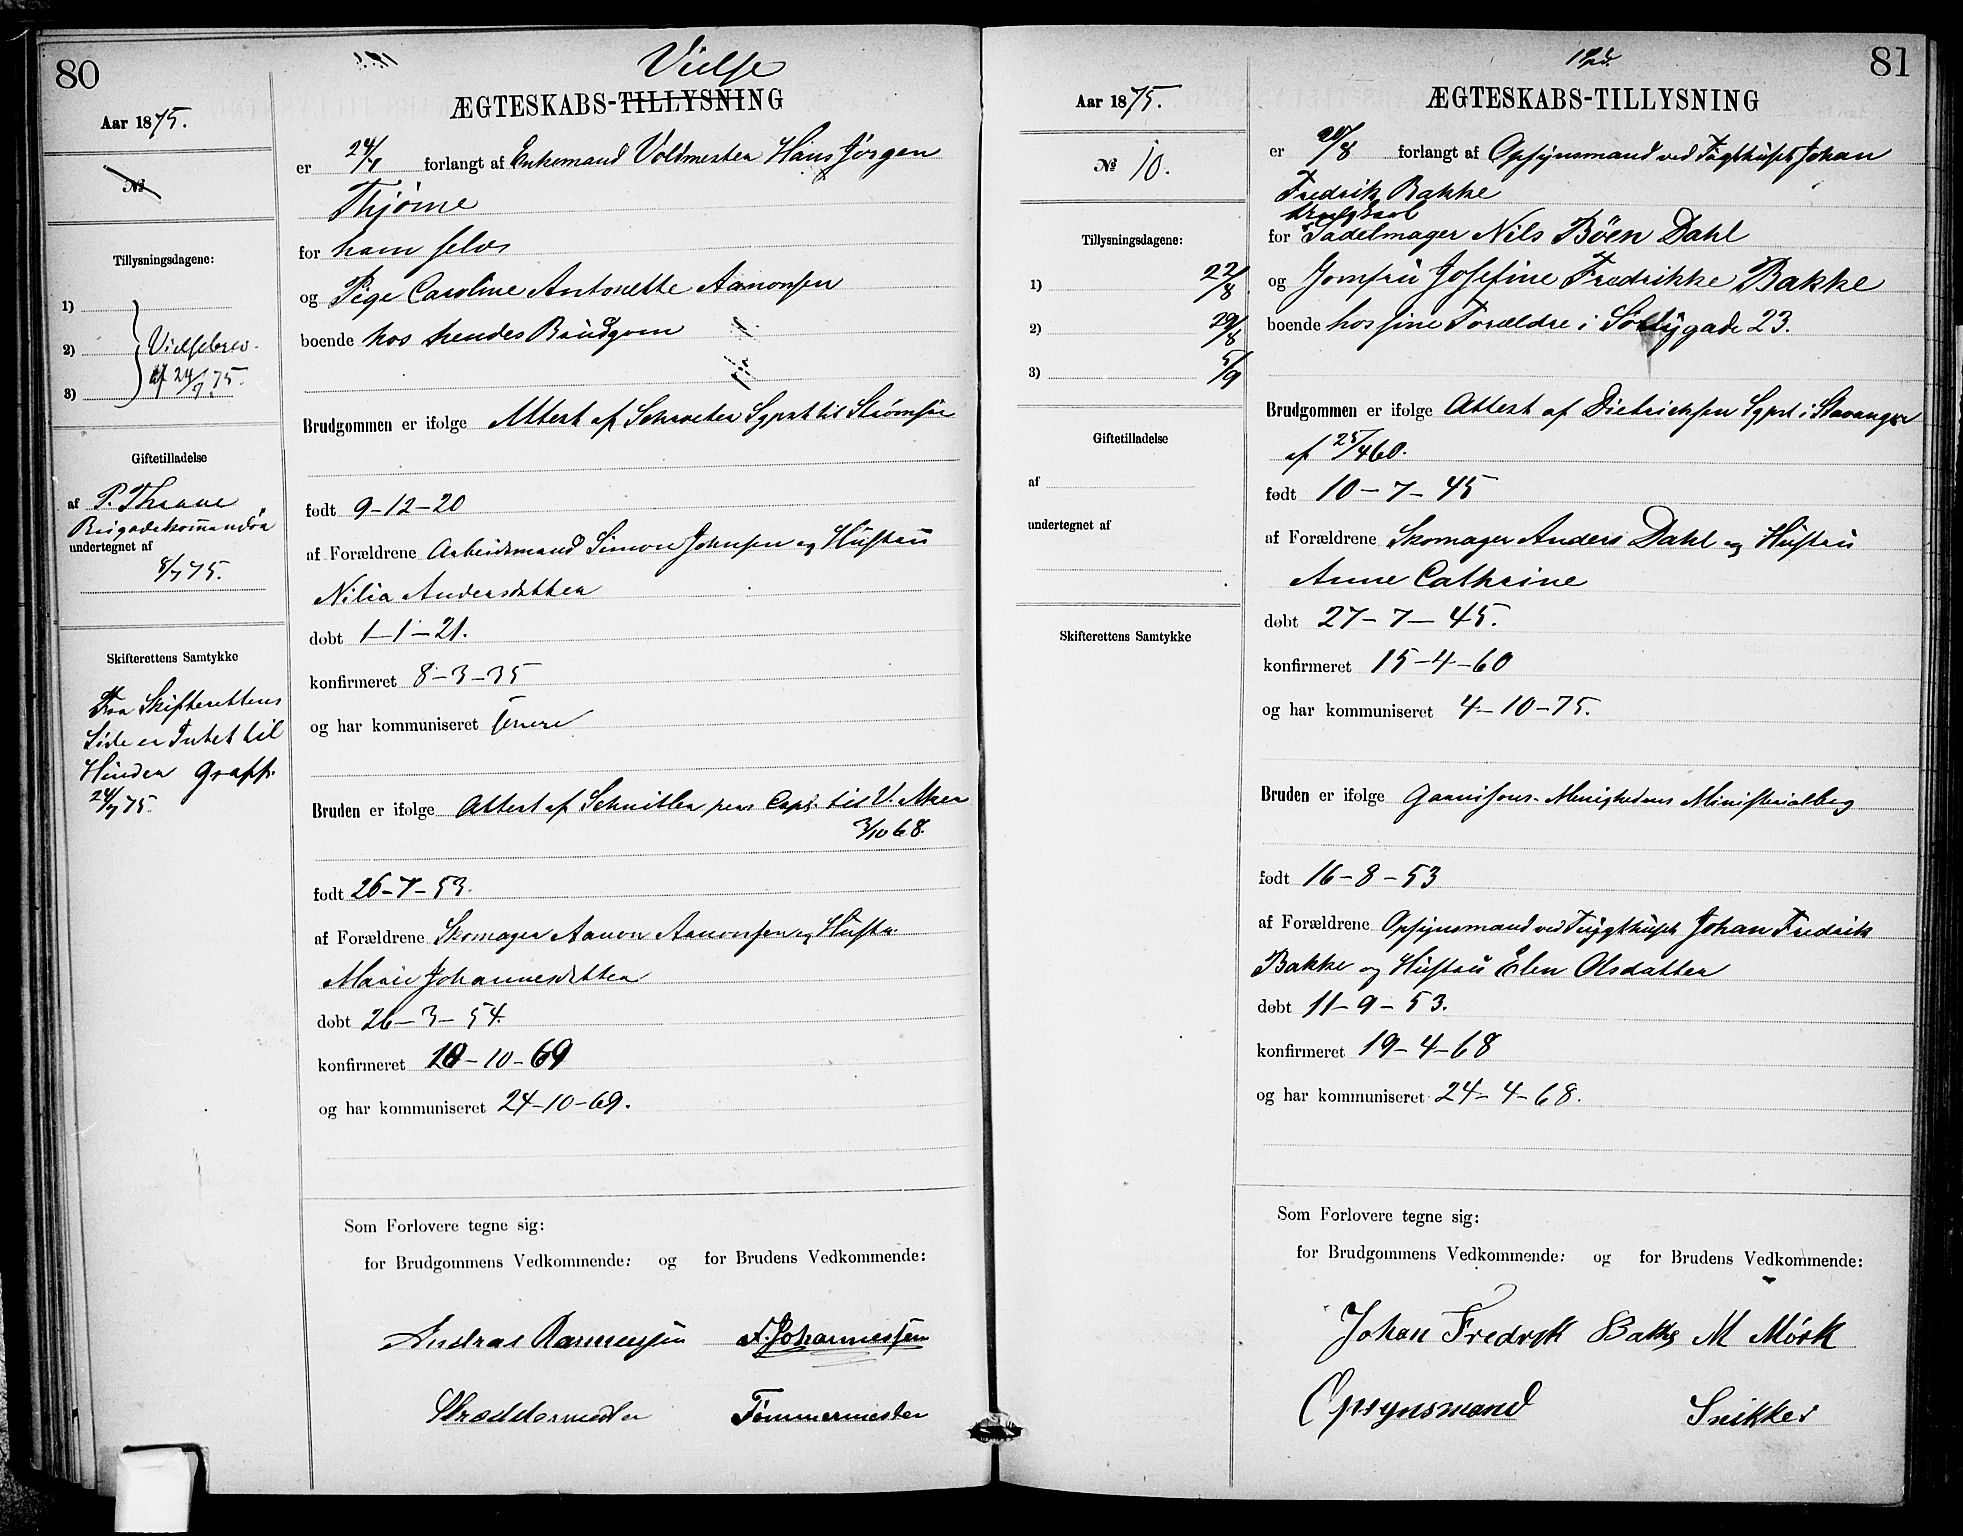 80
Vielse
ÆGTESKABS-TILLYSNING
Aar 1875.
No
Tillysningsdagene:
1)
2) Vielsebrev
3) af 24/7 75.
Giftetilladelse
af P. Thrane
Brigadekommandør
undertegnet af
8/7 75.
Skifterettens Samtykke
Fra Skifterettens
Side er Intet til
Hinder
24/7 75.
er 24/7 forlangt af Enkemand Voldmester Hans Jørgen
Thjøme
for ham selv
og Pige Caroline Antonette Aanonsen
boende hos hendes Brudgom
Brudgommen er ifølge Attest af Schroeter Sgprst til Strømsø
født 9-12-20
af Forældrene Arbeidsmand Simon Johnsen og Hustru
Nilia Andersdatter
døbt 1-1-21.
konfirmeret 8-3-35
og har kommuniseret
Bruden er ifølge Attest af Schnitler pers Cap. til V. Aker
3/10 68.
født 26-7-53.
af Forældrene Skomager Aanon Aanonsen og Hustru
Marie Johannesdatter
døbt 26-3-54.
konfirmeret 10-10-69
og har kommuniseret 24-10-69.
Som Forlovere tegne sig:
for Brudgommens Vedkommende: og for Brudens Vedkommende:
Andreas Rasmussen A. Johannessen
Skræddermester Tømmermester
81
ÆGTESKABS-TILLYSNING
Aar 1875.
No 10.
Tillysningsdagene:
1) 22/8
2) 29/8
3) 5/9
Giftetilladelse
af
undertegnet af
Skifterettens Samtykke
er 20/8 forlangt af Opsynsmand ved Tugthuset Johan
Fredrik Bakke
Ungkarl
for Sadelmager Nils Bøen Dahl
og Jomfru Josefine Fredrikke Bakke
boende hos sine Forældre i Solligade 23.
Brudgommen er ifølge Attest af Dietrichsen Sgprst i Stavanger
af 25/4 60.
født 10-7-45
af Forældrene Skomager Anders Dahl og Hustru
Anne Cathrine
døbt 27-7-45.
konfirmeret 15-4-60
og har kommuniseret 4-10-75.
Bruden er ifølge Garnisons-Menighedens Ministerialbog
født 16-8-53
af Forældrene Opsynsmand ved Tugthuset Johan Fredrik
Bakke og Hustru Elen Olsdatter
døbt 11-9-53.
konfirmeret 19-4-68
og har kommuniseret 24-4-68.
Som Forlovere tegne sig:
for Brudgommens Vedkommende: og for Brudens Vedkommende:
Johan Fredrik Bakke M Mörk
Opsynsmand Snikker